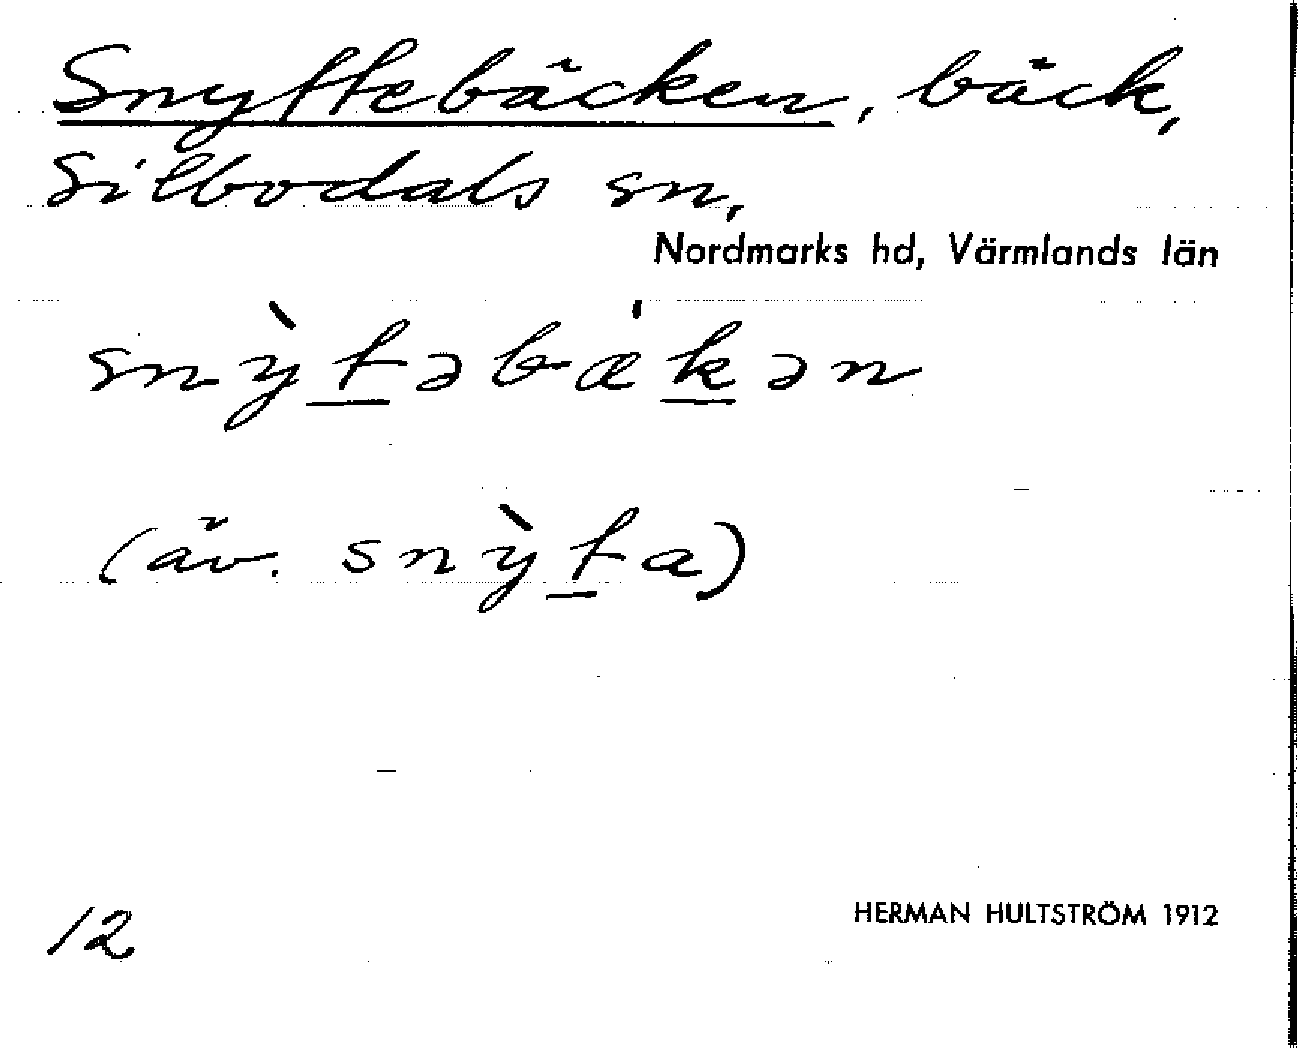 Snyttebäcken, bäck,
Silbodals sn,
Nordmarks hd, Värmlands län
snỳt̲əbǽk̲ən
(äv. snỳt̲a)
12
HERMAN HULTSTRÖM 1912